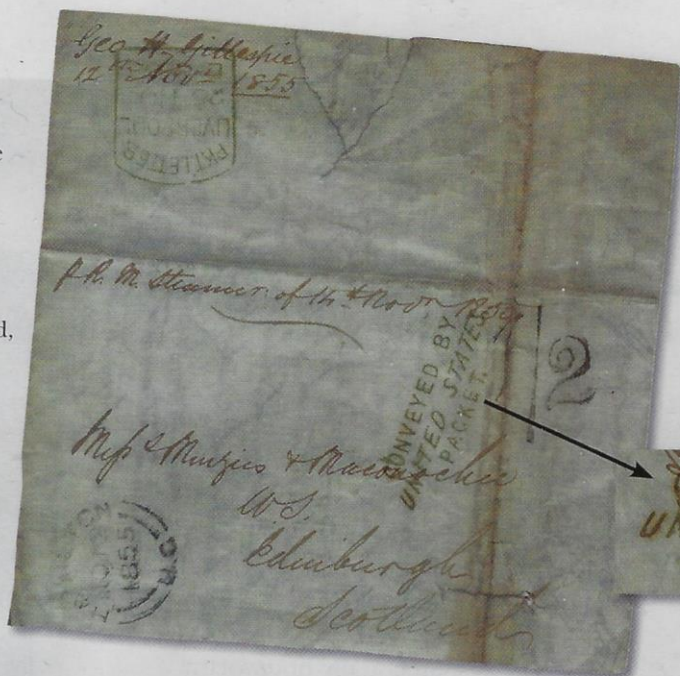 Geo H. Gillespie
12th Novr 1855
PKT LETTER
LIVERPOOL
p R. M. Steamer of 14th Novr
CONVEYED BY
UNITED STATES
PACKET.
2
Messrs Menzies & Maconochie
W.S.
Edinburgh
Scotland
1855
U.C.
d,